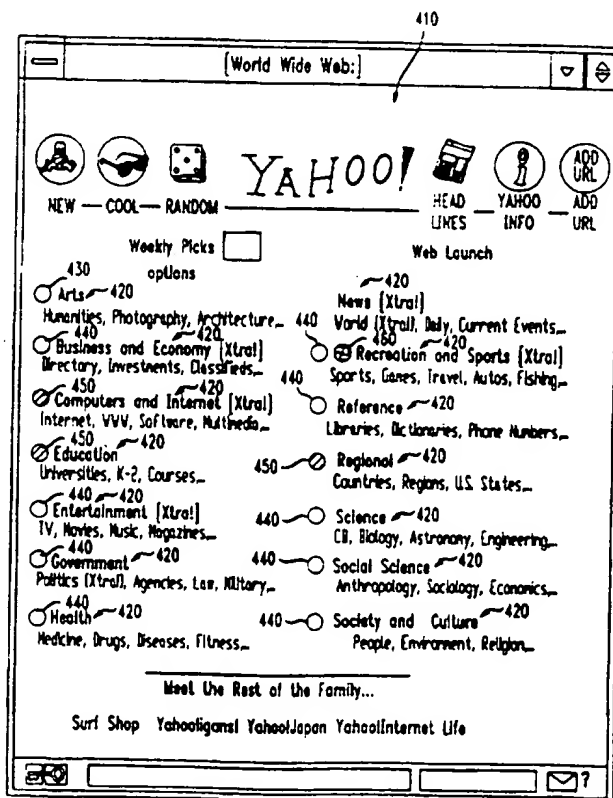 410
[World Wide Web:]
YAHOO!
ADD
URL
NEW — COOL — RANDOM
HEAD
LINES
YAHOO
INFO
ADD
URL
Weekly Picks
options
Web Launch
430
Arts 420
Humanities, Photography, Architecture...
440 420
Business and Economy [Xtra!]
Directory, Investments, Classifieds...
450 420
Computers and Internet [Xtra!]
Internet, VVV, Software, Multimedia...
450 420
Education
Universities, K-2, Courses...
440 420
Entertainment [Xtra!]
TV, Movies, Music, Magazines...
440 420
Government
Politics [Xtra!], Agencies, Law, Military...
440 420
Health
Medicine, Drugs, Diseases, Fitness...
420
News [Xtra!]
World [Xtra!], Daily, Current Events...
440 460 420
Recreation and Sports [Xtra!]
Sports, Games, Travel, Autos, Fishing...
440
Reference 420
Libraries, Dictionaries, Phone Numbers...
450 Regional 420
Countries, Regions, U.S. States...
440 Science 420
CB, Biology, Astronomy, Engineering...
440 Social Science 420
Anthropology, Sociology, Economics...
440 Society and Culture 420
People, Environment, Religion...
Meet the Rest of the Family...
Surf Shop Yahooligans! Yahoo!Japan Yahoo!Internet Life
?